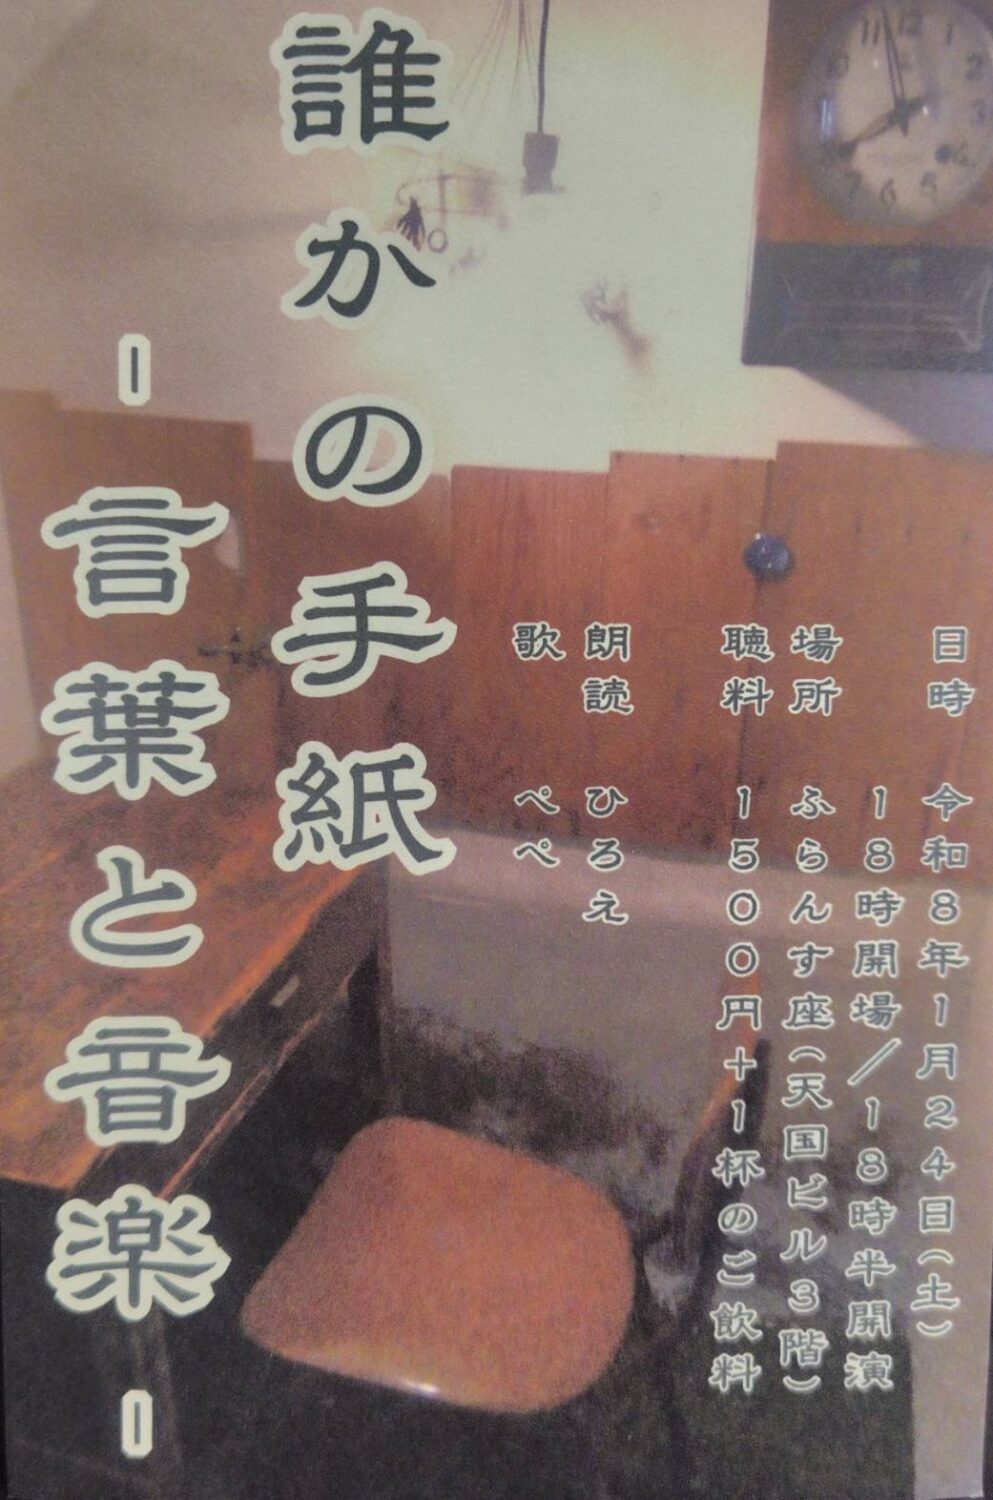 誰かの手紙
-言葉と音楽-
日時 令和8年1月24日(土)
18時開場/18時半開演
場所 ふらんす座(天国ビル3階)
聴料 1500円+1杯のご飲料
朗読 ひろえ
歌 ぺぺ
11 12 1
10 2
3
4
8 7 6 5